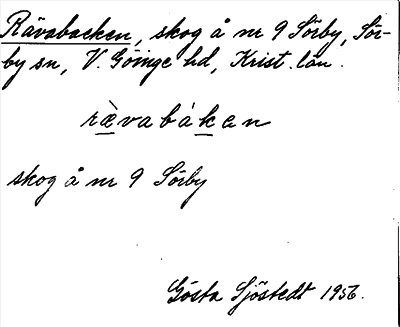 Rävabacken, skog å nr 9 Sörby, Sör-
by sn, V. Göinge hd, Krist. län.
rævabáken
skog å nr 9 Sörby
Gösta Sjöstedt 1956.